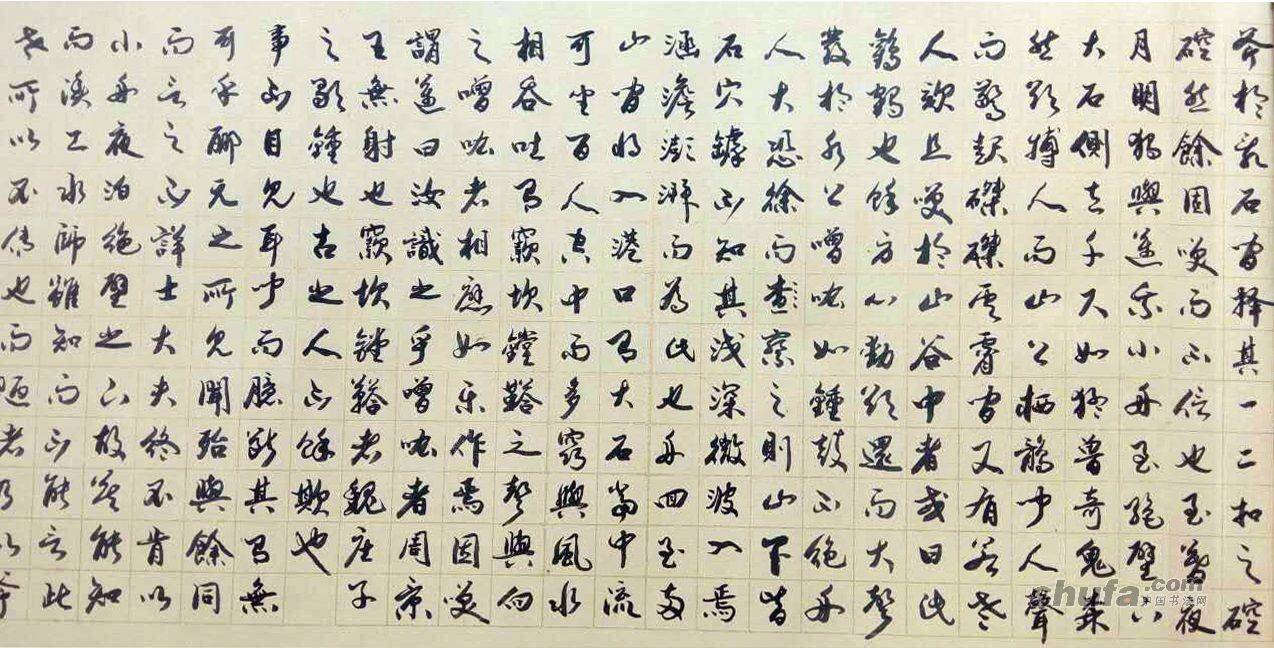 斧於乱石間择其一二扣之硿
硿然餘固笑而不信也至暮夜
月明獨與邁乘小舟至絕壁下
大石側立千尺如猛獸奇鬼森
然欲搏人而山上栖鶻聞人聲
而驚起磔磔雲霄間又有若老
人欬且笑於山谷中者或曰此
鸛鶴也餘方心動欲還而大聲
發於水上噌吰如鍾鼓不絕舟
人大恐徐而查察之則山下皆
石穴罅不知其淺深微波入焉
涵澹澎湃而為此也舟回至兩
山間將入港口有大石當中流
可坐百人空中而多竅與風水
相吞吐有窾坎鏜鞳之聲與向
之噌吰者相應如乐作焉因笑
謂邁曰汝識之乎噌吰者周景
王無射也窾坎鏜鞳者魏庄子
之歌鍾也古之人不餘欺也
事不目見耳聞而臆斷其有無
可乎酈元之所見聞殆與餘同
而言之不詳士大夫終不肯以
小舟夜泊絕壁之下故莫能知
而漁工水師雖知而不能言此
世所以不傳也而陋者乃以斧
shufa.com
中国书法网